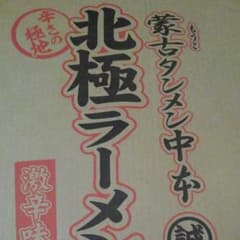 蒙古タンメン中本
もうこ
北極ラーメン
辛さの極地
激辛味
誠